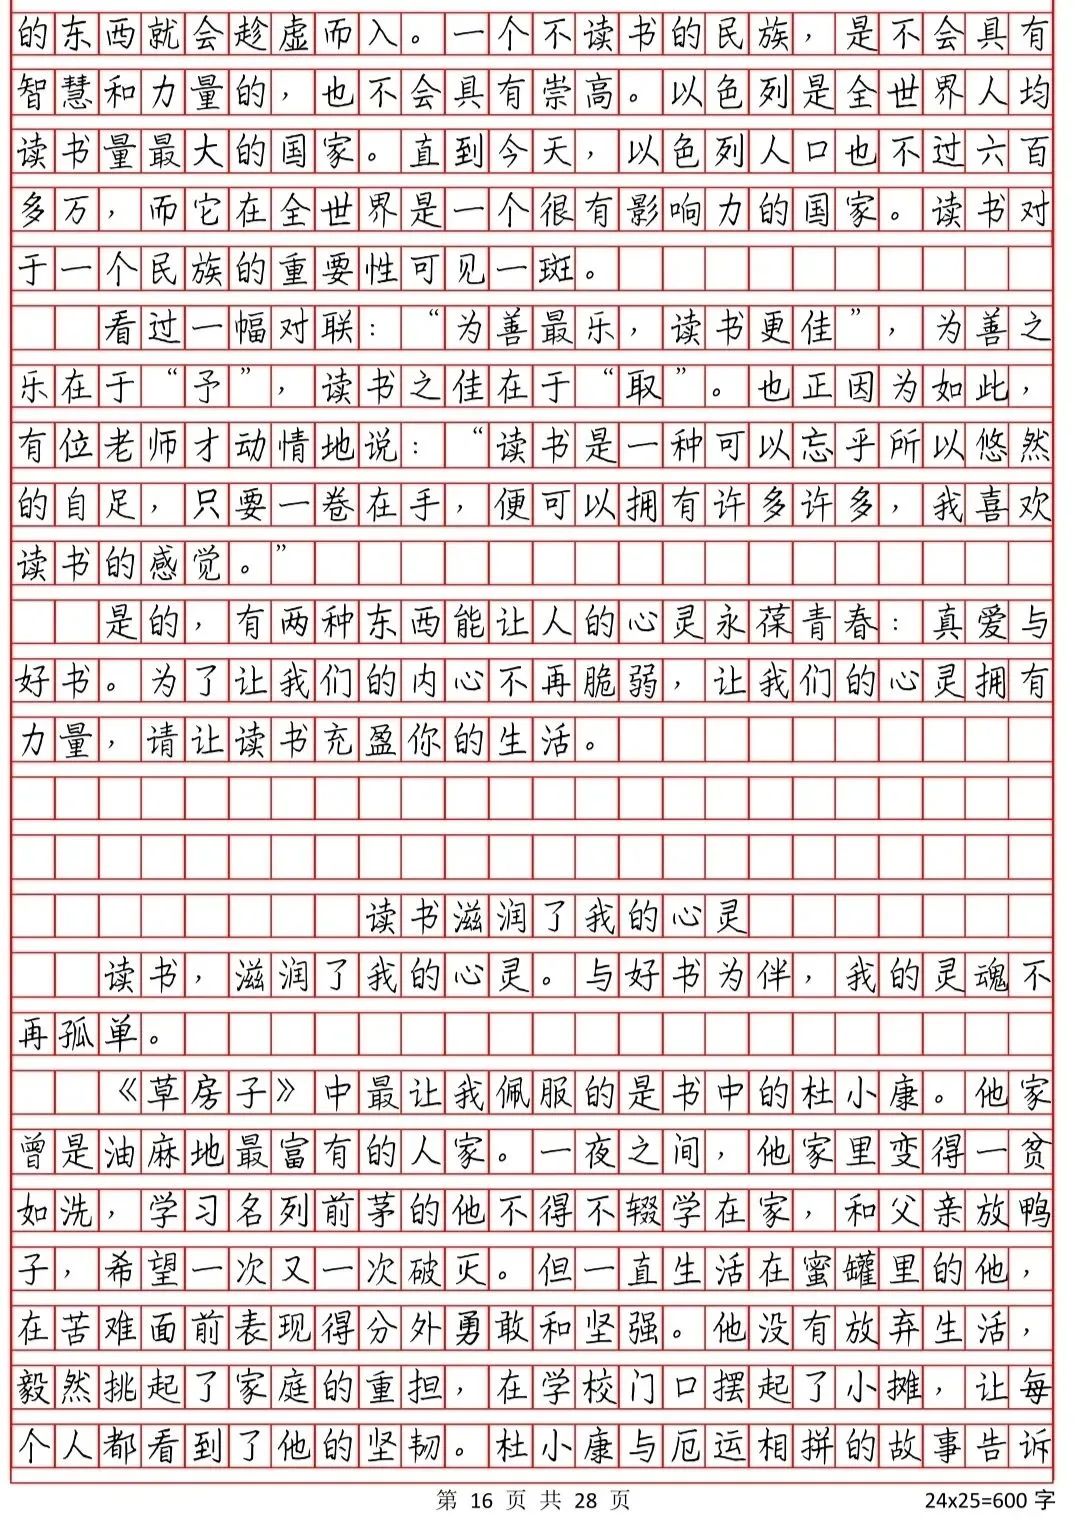 的东西就会趁虚而入。一个不读书的民族，是不会具有
智慧和力量的，也不会具有崇高。以色列是全世界人均
读书量最大的国家。直到今天，以色列人口也不过六百
多万，而它在全世界是一个很有影响力的国家。读书对
于一个民族的重要性可见一斑。
看过一幅对联：“为善最乐，读书更佳”，为善之
乐在于“予”，读书之佳在于“取”。也正因为如此，
有位老师才动情地说：“读书是一种可以忘乎所以悠然
的自足，只要一卷在手，便可以拥有许多许多，我喜欢
读书的感觉。”
是的，有两种东西能让人的心灵永葆青春：真爱与
好书。为了让我们的内心不再脆弱，让我们的心灵拥有
力量，请让读书充盈你的生活。
读书滋润了我的心灵
读书，滋润了我的心灵。与好书为伴，我的灵魂不
再孤单。
《草房子》中最让我佩服的是书中的杜小康。他家
曾是油麻地最富有的人家。一夜之间，他家里变得一贫
如洗，学习名列前茅的他不得不辍学在家，和父亲放鸭
子，希望一次又一次破灭。但一直生活在蜜罐里的他，
在苦难面前表现得分外勇敢和坚强。他没有放弃生活，
毅然挑起了家庭的重担，在学校门口摆起了小摊，让每
个人都看到了他的坚韧。杜小康与厄运相拼的故事告诉
第 16 页 共 28 页 24x25=600 字